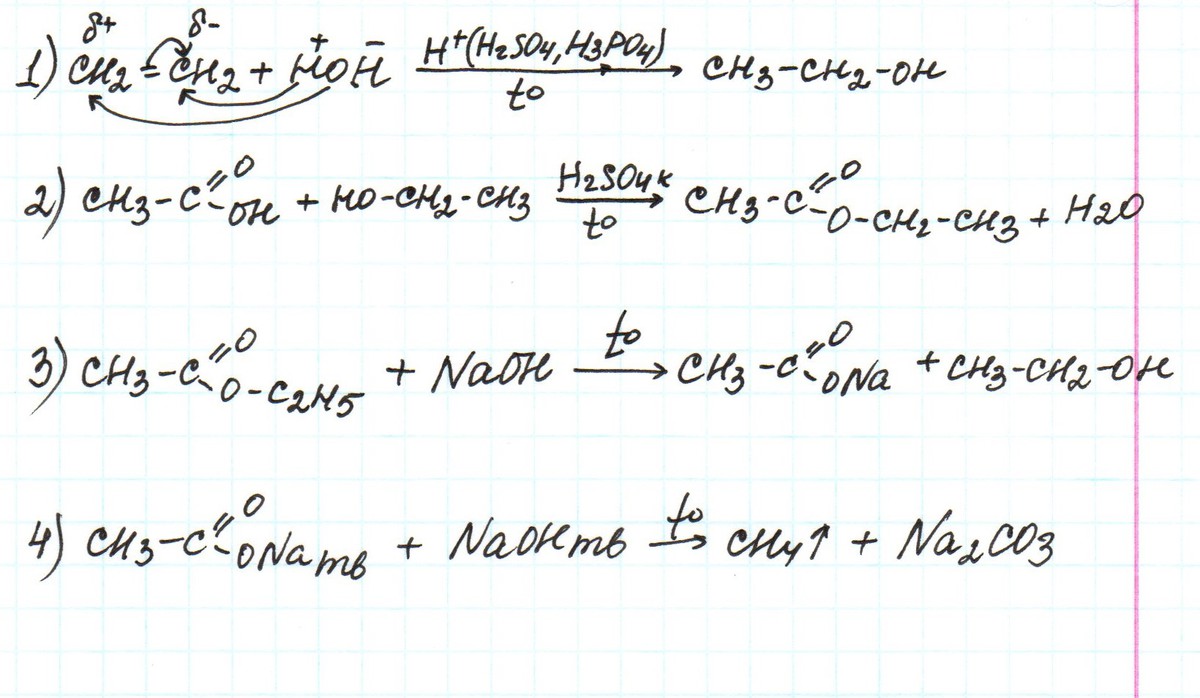 δ+ δ-
1) CH2=CH2 + H⁺OH⁻ H+(H2SO4, H3PO4) t° → CH3-CH2-OH
2) CH3-C=O-OH + HO-CH2-CH3 H2SO4к t° → CH3-C=O-O-CH2-CH3 + H2O
3) CH3-C=O-O-C2H5 + NaOH t° → CH3-C=O-ONa + CH3-CH2-OH
4) CH3-C=O-ONaтв + NaOHтв t° → CH4↑ + Na2CO3